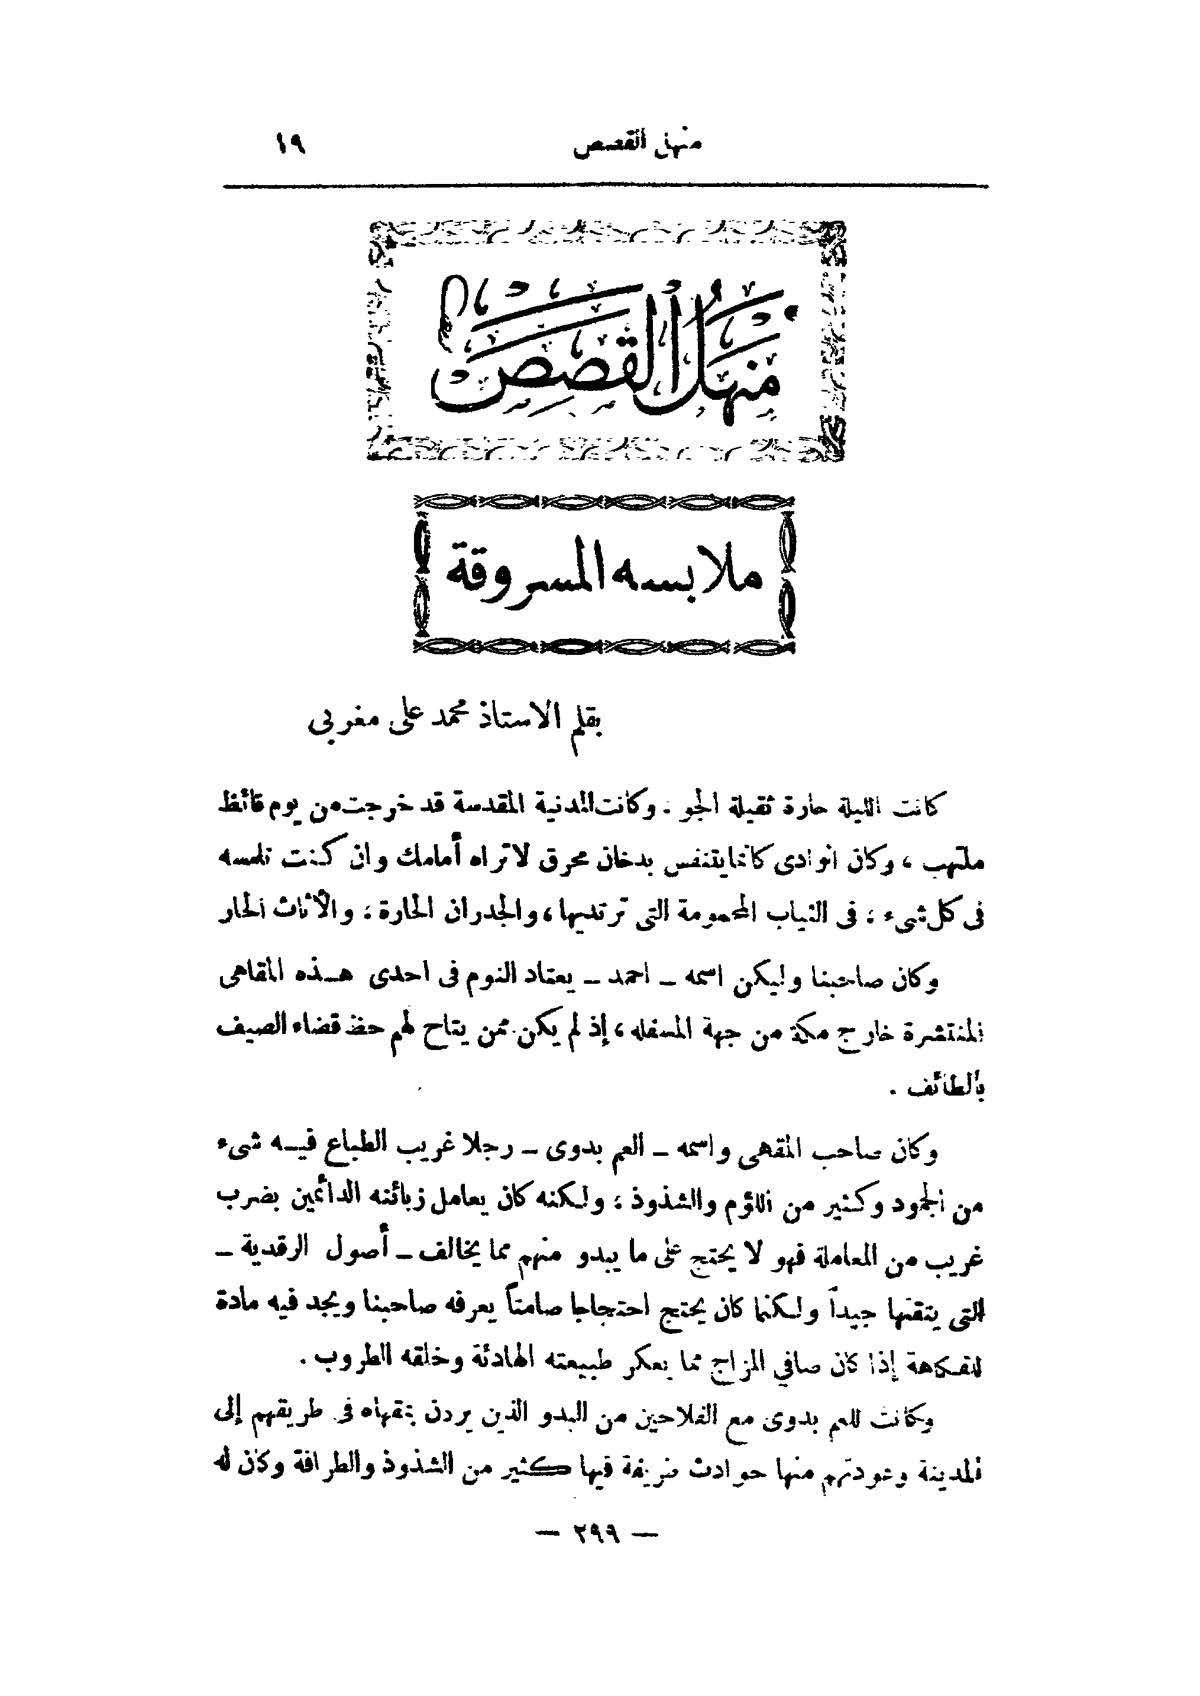 منهل القصص ١٩
منهل القصص
ملابسه المسروقة
بقلم الاستاذ محمد على مغربى
كانت الليلة حارة ثقيلة الجو . وكانت المدنية المقدسة قد خرجت من يوم قائظ
ملتهب ، وكان الوادى كانما يتنفس بدخان محرق لا تراه أمامك وان كنت تلمسه
فى كل شىء ؛ فى الثياب المحمومة التى ترتديها ، والجدران الحارة ؛ والأثاث الحار
وكان صاحبنا وليكن اسمه – احمد – يعتاد النوم فى احدى هذه المقاهى
المنتشرة خارج مكة من جهة المسفله ، إذ لم يكن ممن يتاح لهم حظ قضاء الصيف
بالطائف .
وكان صاحب المقهى واسمه – العم بدوى – رجلا غريب الطباع فيه شىء
من الجمود وكثير من اللؤم والشذوذ ؛ ولكنه كان يعامل زبائنه الدائمين بضرب
غريب من المعاملة فهو لا يحتج على ما يبدو منهم مما يخالف – أصول الرقدية –
التى يتقنها جيداً ولكنما كان يحتج احتجاجا صامتاً يعرفه صاحبنا ويجد فيه مادة
للفكاهة إذا كان صافي المزاج مما يعكر طبيعته الهادئة وخلقه الطروب .
وكانت للعم بدوى مع الفلاحين من البدو الذين يردن بمقهاه فى طريقهم إلى
المدينة وعودتهم منها حوادث ظريفة فيها كثير من الشذوذ والطرافة وكان له
— ٢٩٩ —